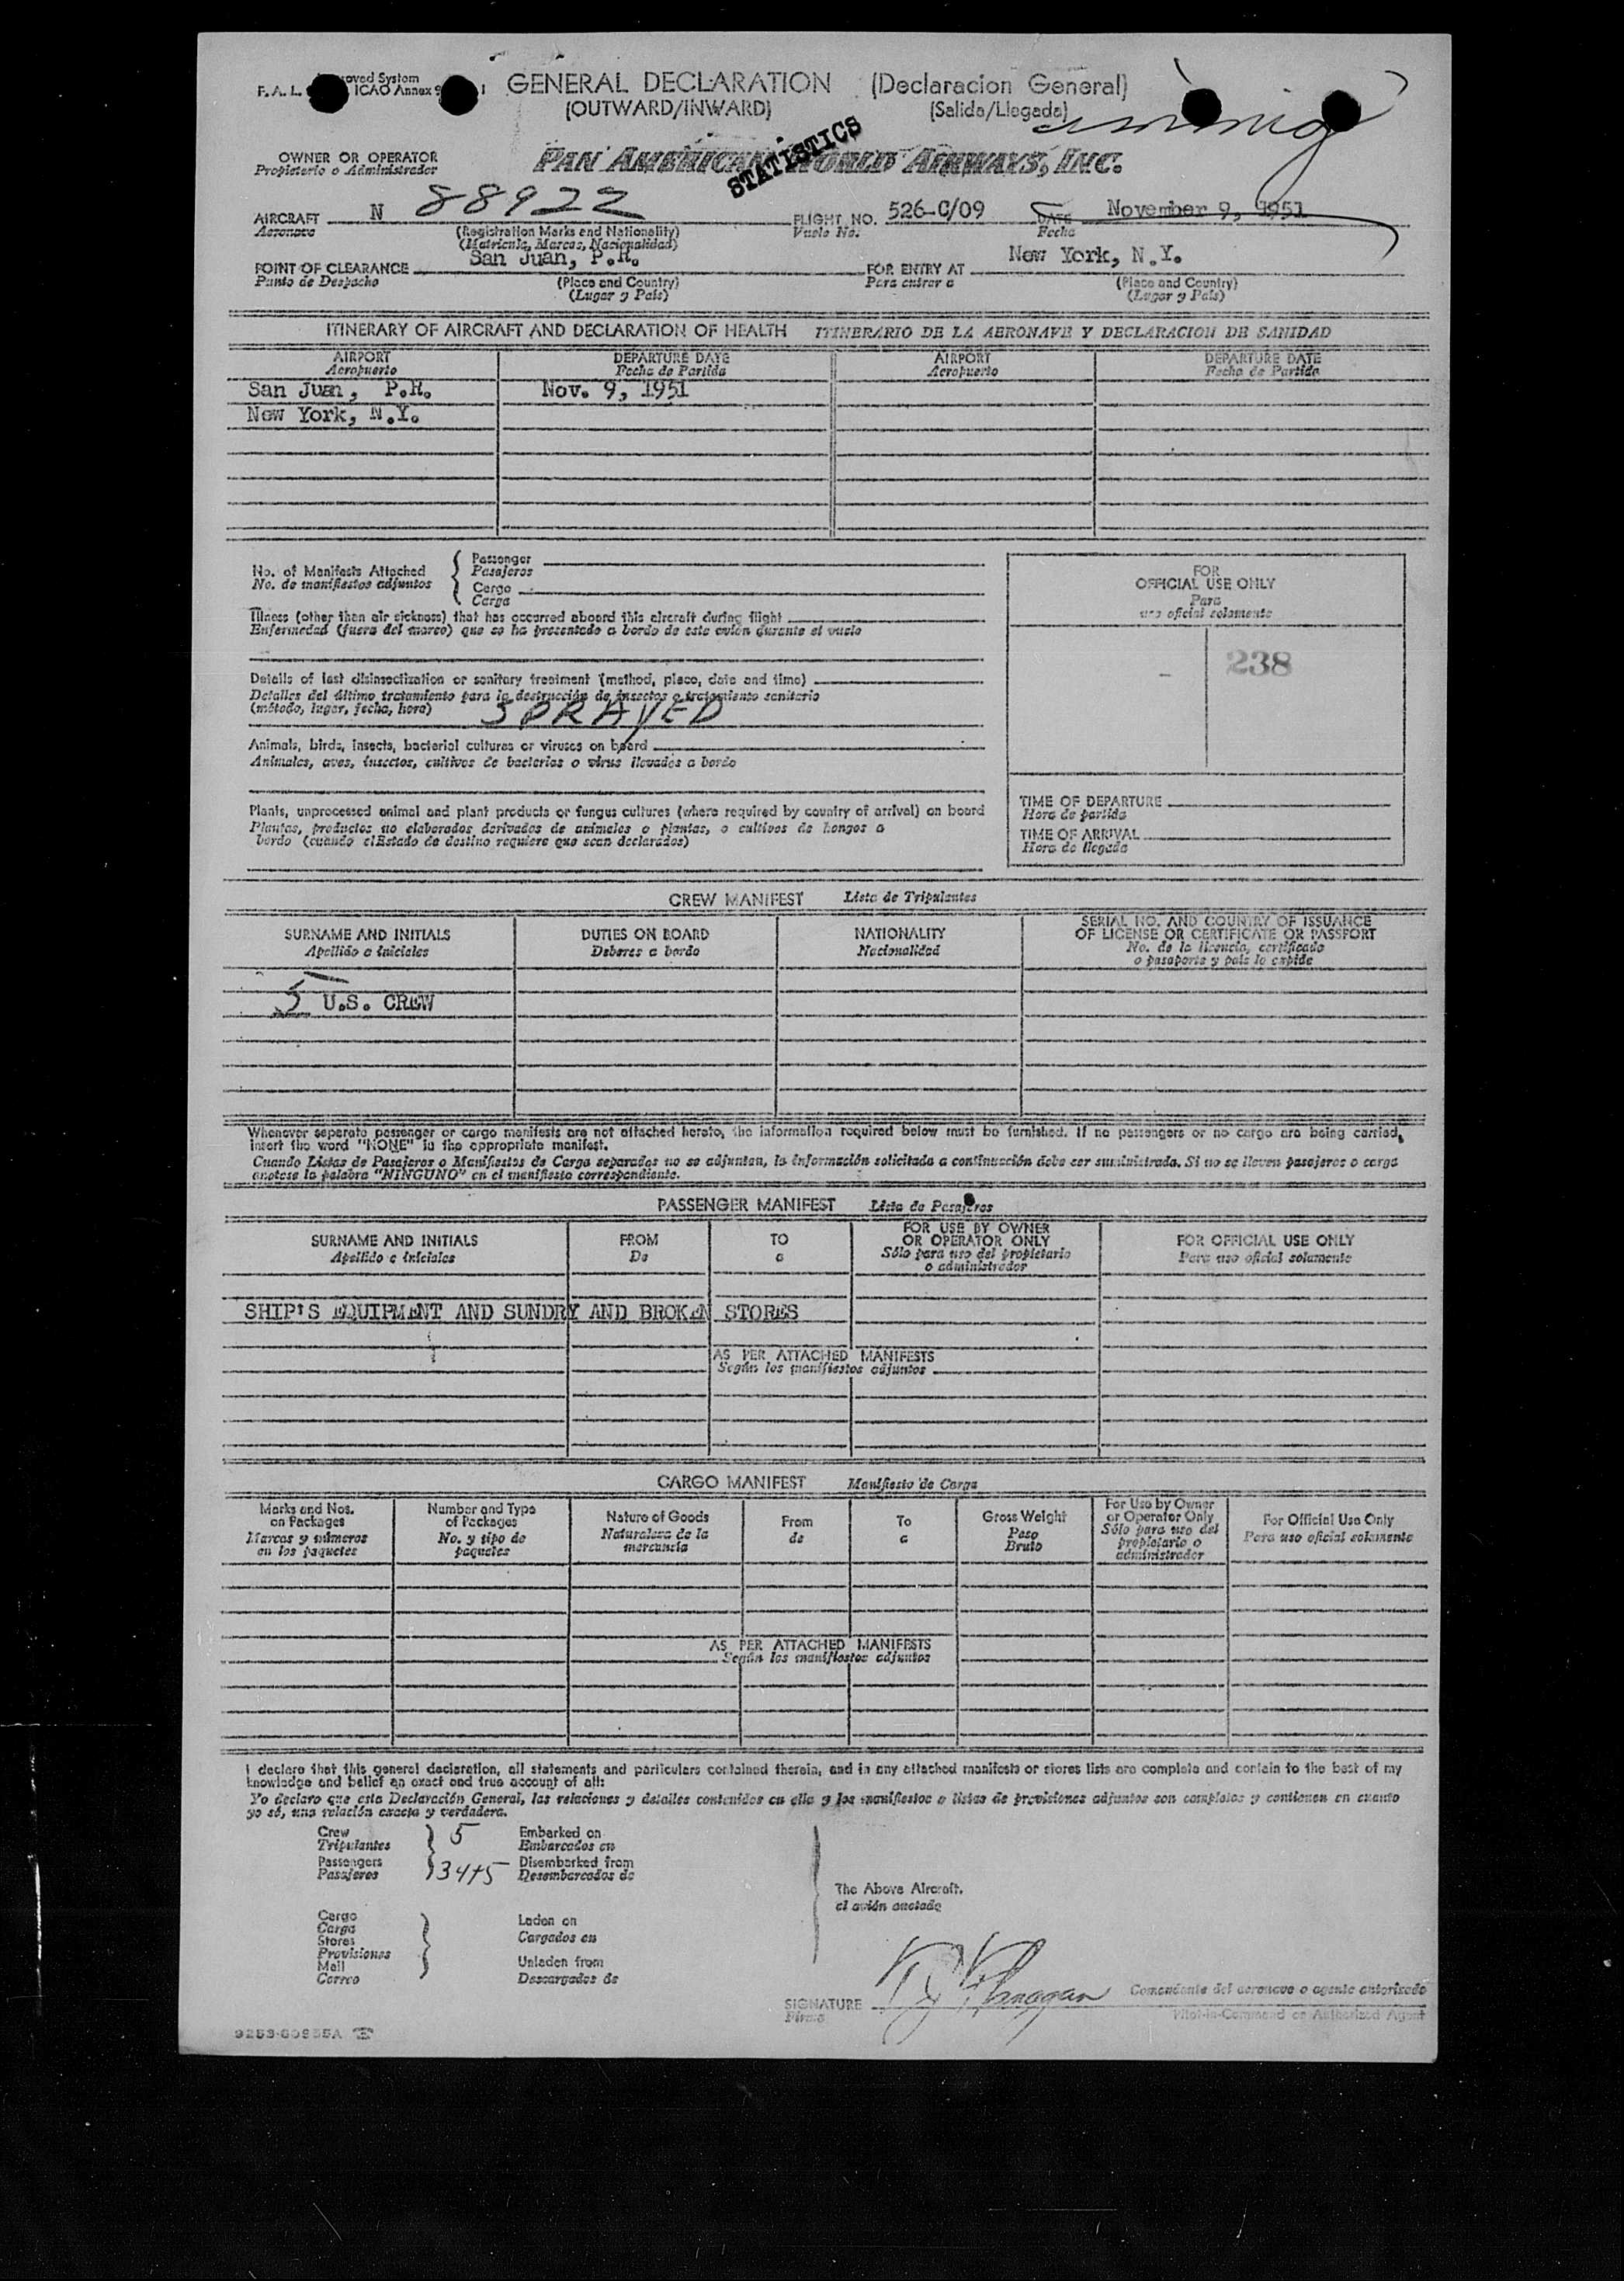 F. A. L. oved System ICAO Annex 9
GENERAL DECLARATION (Declaracion General)
(OUTWARD/INWARD) (Salida/Llegada)
STATISTICS
OWNER OR OPERATOR PAN AMERICAN WORLD AIRWAYS, INC.
Propietario o Administrador
AIRCRAFT N 88922 FLIGHT NO. 526-C/09 DATE November 9, 1951
Aeronave (Registration Marks and Nationality) Vuelo No. Fecha
(Matricula, Marcas, Nacionalidad)
POINT OF CLEARANCE San Juan, P.R. FOR ENTRY AT New York, N.Y.
Punto de Despacho (Place and Country) Para entrar a (Place and Country)
(Lugar y País) (Lugar y País)
ITINERARY OF AIRCRAFT AND DECLARATION OF HEALTH ITINERARIO DE LA AERONAVE Y DECLARACION DE SANIDAD
AIRPORT DEPARTURE DATE AIRPORT DEPARTURE DATE
Aeropuerto Fecha de Partida Aeropuerto Fecha de Partida
San Juan, P.R. Nov. 9, 1951
New York, N.Y.
No. of Manifests Attached Passenger
No. de manifiestos adjuntos Pasajeros
Cargo
Carga
FOR
OFFICIAL USE ONLY
Para
uso oficial solamente
Illness (other than air sickness) that has occurred aboard this aircraft during flight
Enfermedad (fuera del mareo) que se ha presentado a bordo de este avión durante el vuelo
238
Details of last disinsectization or sanitary treatment (method, place, date and time)
Detalles del último tratamiento para la destrucción de insectos o tratamiento sanitario
(método, lugar, fecha, hora) SPRAYED
Animals, birds, insects, bacterial cultures or viruses on board
Animales, aves, insectos, cultivos de bacterias o virus llevados a bordo
Plants, unprocessed animal and plant products or fungus cultures (where required by country of arrival) on board
Plantas, productos no elaborados derivados de animales o plantas, o cultivos de hongos a
bordo (cuando elEstado de destino requiere que sean declarados)
TIME OF DEPARTURE
Hora de partida
TIME OF ARRIVAL
Hora de llegada
CREW MANIFEST Lista de Tripulantes
SURNAME AND INITIALS DUTIES ON BOARD NATIONALITY SERIAL NO. AND COUNTRY OF ISSUANCE
OF LICENSE OR CERTIFICATE OR PASSPORT
Apellido e iniciales Deberes a bordo Nacionalidad No. de la licencia, certificado
o pasaporte y país lo expide
5 U.S. CREW
Whenever separate passenger or cargo manifests are not attached hereto, the information required below must be furnished. If no passengers or no cargo are being carried,
insert the word "NONE" in the appropriate manifest.
Cuando Listas de Pasajeros o Manifiestos de Carga separados no se adjuntan, la información solicitada a continuación debe ser suministrada. Si no se lleven pasajeros o carga
anotese la palabra "NINGUNO" en el manifiesto correspondiente.
PASSENGER MANIFEST Lista de Pasajeros
SURNAME AND INITIALS FROM TO FOR USE BY OWNER OR OPERATOR ONLY FOR OFFICIAL USE ONLY
Apellido e iniciales De a Sólo para uso del propietario o administrador Para uso oficial solamente
SHIP'S EQUIPMENT AND SUNDRY AND BROKEN STORES
AS PER ATTACHED MANIFESTS
Según los manifiestos adjuntos
CARGO MANIFEST Manifiesto de Carga
Marks and Nos. on Packages Number and Type of Packages Nature of Goods From To Gross Weight For Use by Owner or Operator Only For Official Use Only
Marcas y números en los paquetes No. y tipo de paquetes Naturaleza de la mercancía de a Peso Bruto Sólo para uso del propietario o administrador Para uso oficial solamente
AS PER ATTACHED MANIFESTS
Según los manifiestos adjuntos
I declare that this general declaration, all statements and particulars contained therein, and in any attached manifests or stores lists are complete and contain to the best of my
knowledge and belief an exact and true account of all:
Yo declaro que esta Declaración General, las relaciones y detalles contenidos en ella y los manifiestos o listas de provisiones adjuntos son completos y contienen en cuanto
yo sé, una relación exacta y verdadera.
Crew 5 Embarked on
Tripulantes Embarcados en
Passengers 34+5 Disembarked from
Pasajeros Desembarcados de
The Above Aircraft.
el avión anotado
Cargo Laden on
Carga Cargados en
Stores
Provisiones Unladen from
Mail Descargados de
Correo
SIGNATURE Flanagan Comandante del aeronave o agente autorizado
Firma Pilot-in-Command or Authorized Agent